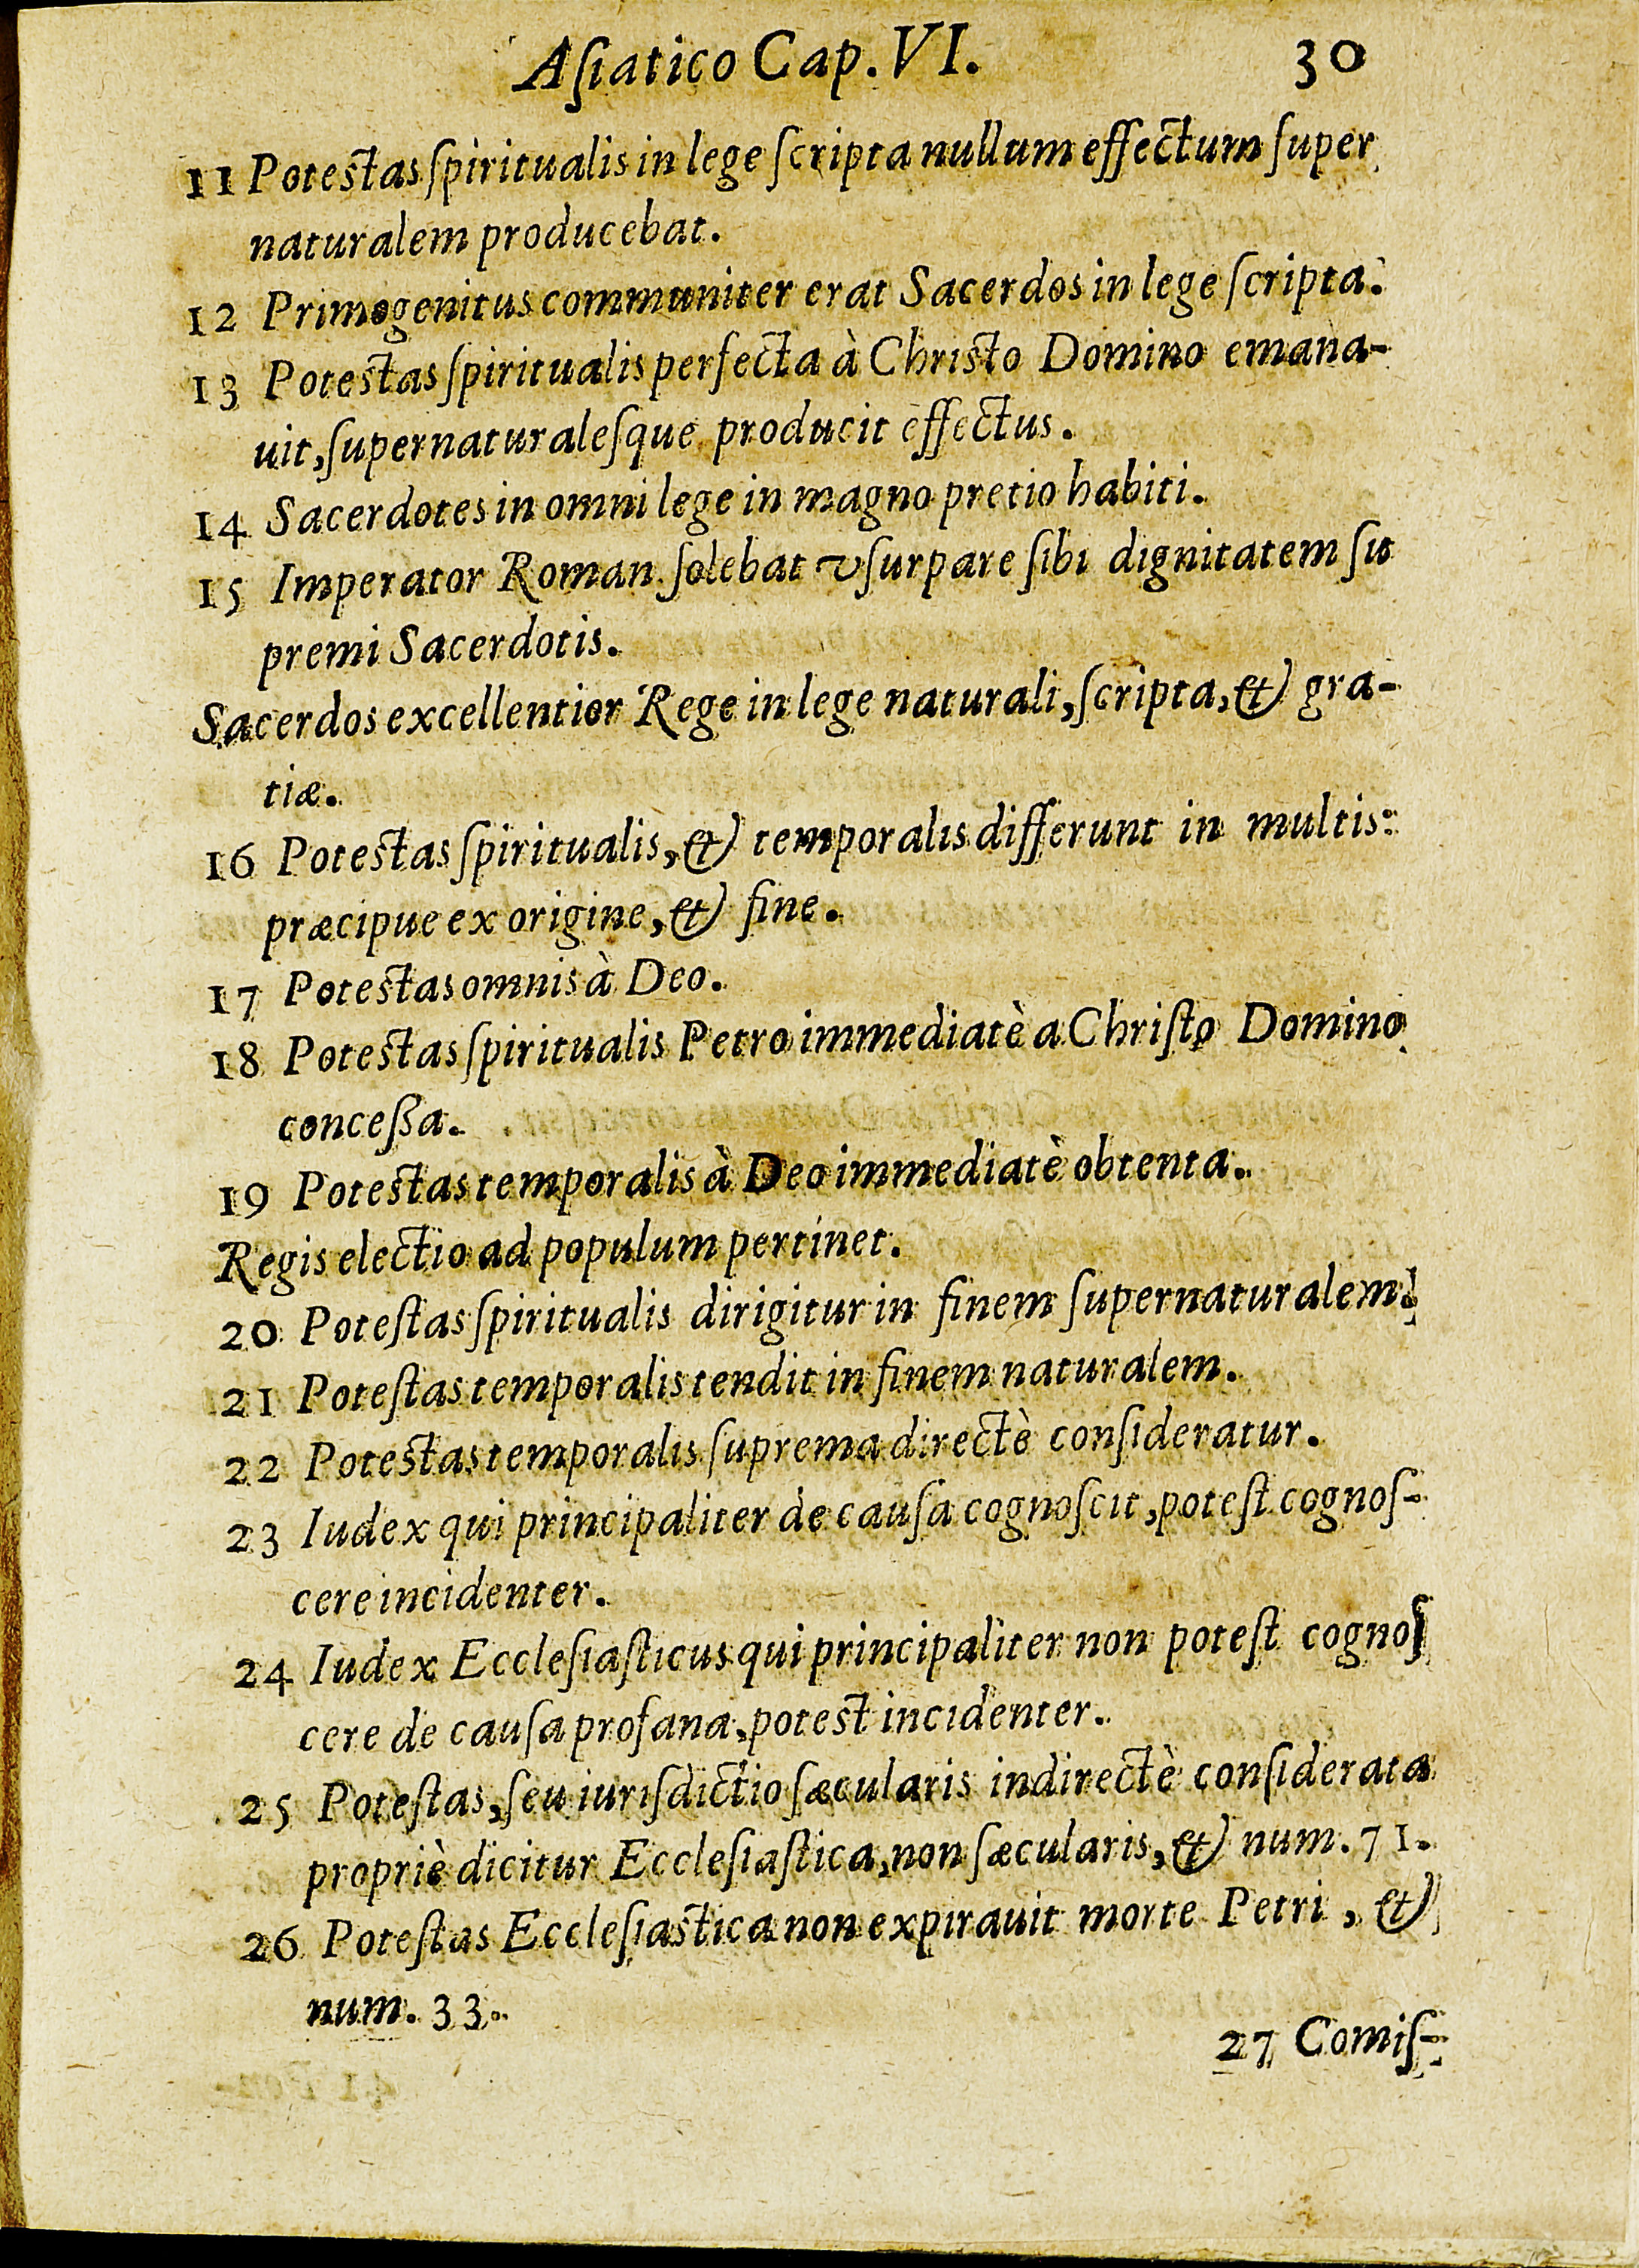 Aſiatico Cap. VI. 30
11 Poteſtas ſpiritualis in lege ſcripta nullum effectum ſuper
naturalem producebat.
12 Primogenitus communiter erat Sacerdos in lege ſcripta.
13 Poteſtas ſpiritualis perfecta à Chriſto Domino emana-
uit, ſupernaturaleſque producit effectus.
14 Sacerdotes in omni lege in magno pretio habiti.
15 Imperator Roman. ſolebat vſurpare ſibi dignitatem ſu
premi Sacerdotis.
Sacerdos excellentior Rege in lege naturali, ſcripta, & gra-
tiæ.
16 Poteſtas ſpiritualis, & temporalis differunt in multis:
præcipue ex origine, & fine.
17 Poteſtas omnis à Deo.
18 Poteſtas ſpiritualis Petro immediatè a Chriſto Domino
conceßa.
19 Poteſtas temporalis à Deo immediatè obtenta.
Regis electio ad populum pertinet.
20 Poteſtas ſpiritualis dirigitur in finem ſupernaturalem.
21 Poteſtas temporalis tendit in finem naturalem.
22 Poteſtas temporalis ſuprema directè conſideratur.
23 Iudex qui principaliter de cauſa cognoſcit, poteſt cognoſ-
cere incidenter.
24 Iudex Eccleſiaſticus qui principaliter non poteſt cognoſ
cere de cauſa profana, poteſt incidenter.
25 Poteſtas, ſeu iuriſdictio ſæcularis indirectè conſiderata
propriè dicitur Eccleſiaſtica, non ſæcularis, & num. 71.
26 Poteſtas Eccleſiaſtica non expirauit morte Petri, &
num. 33.
27 Comiſ-